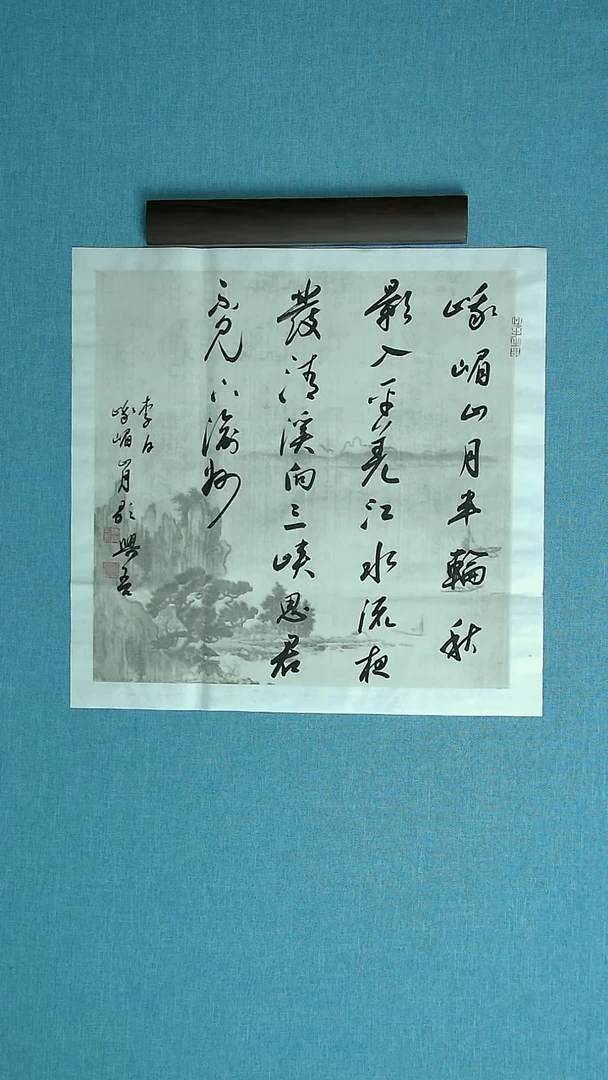 峨嵋山月半輪秋
影入平羌江水流夜
發清溪向三峽思君
不見下渝州
李白
峨嵋山月歌